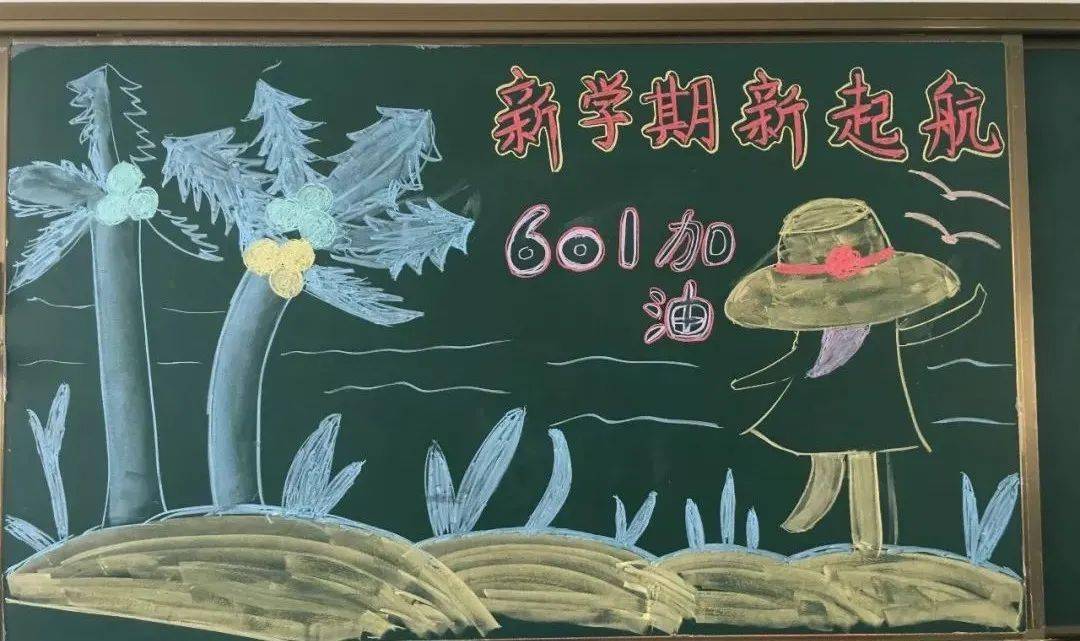 新学期新起航
601加
油